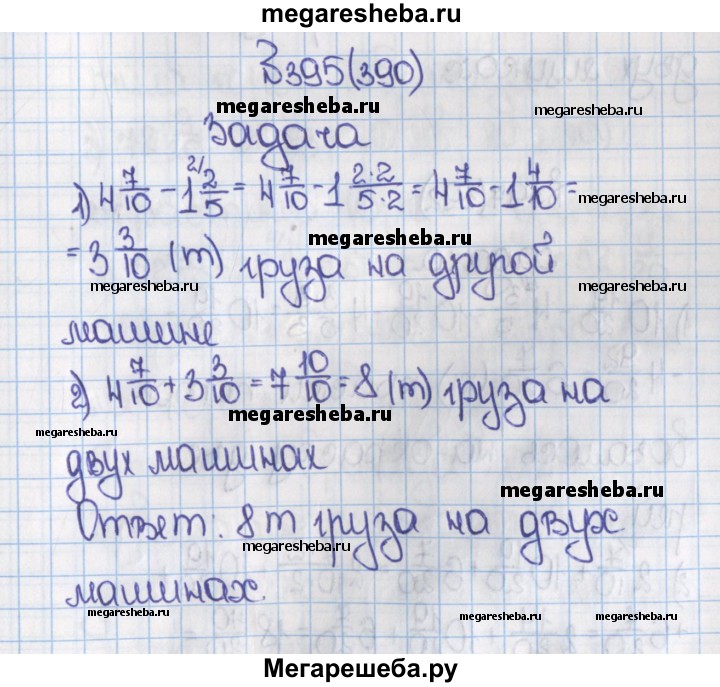 megaresheba.ru
В 395(390)
megaresheba.ru megaresheba.ru
Задача
1) 4 7/10 - 1 2/5 2/ = 4 7/10 - 1 2·2/5·2 = 4 7/10 - 1 4/10 =
megaresheba.ru
megaresheba.ru
= 3 3/10 (т) груза на другой
megaresheba.ru megaresheba.ru
машине
2) 4 7/10 + 3 3/10 = 7 10/10 = 8 (т) груза на
megaresheba.ru
megaresheba.ru
двух машинах
megaresheba.ru
Ответ: 8 т груза на двух
megaresheba.ru
машинах.
megaresheba.ru megaresheba.ru megaresheba.ru
Мегарешеба.ру